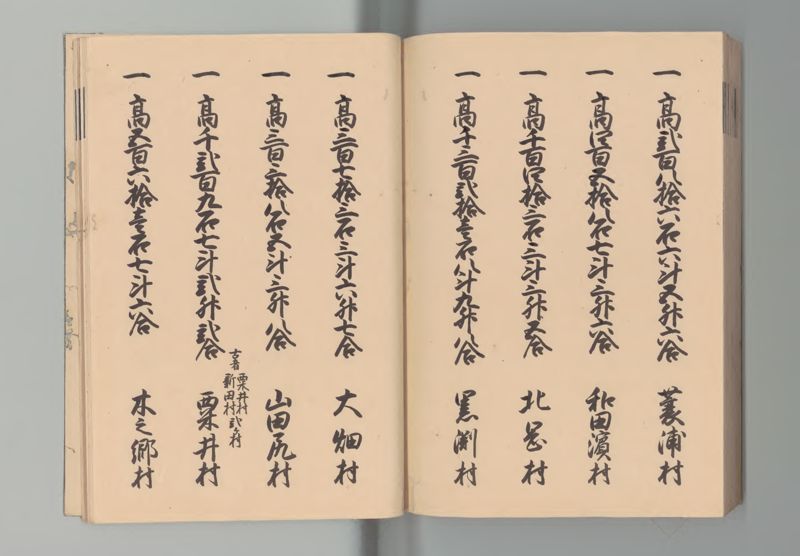 一 高弐百八拾六石六斗五升六合 蓑浦村
一 高四百五拾八石七斗三升六合 和田濱村
一 高千百四拾三石三斗三升五合 北岡村
一 高千三百弐拾壱石八斗九升八合 黒渕村
一 高三百七拾三石三斗六升七合 大畑村
一 高三百三拾八石五斗三升八合 山田尻村
一 高千弐百九石七斗弐升弐合 粟井村
古者 粟井村
新田村 弐ケ村
一 高五百六拾壱石七斗六合 木之郷村